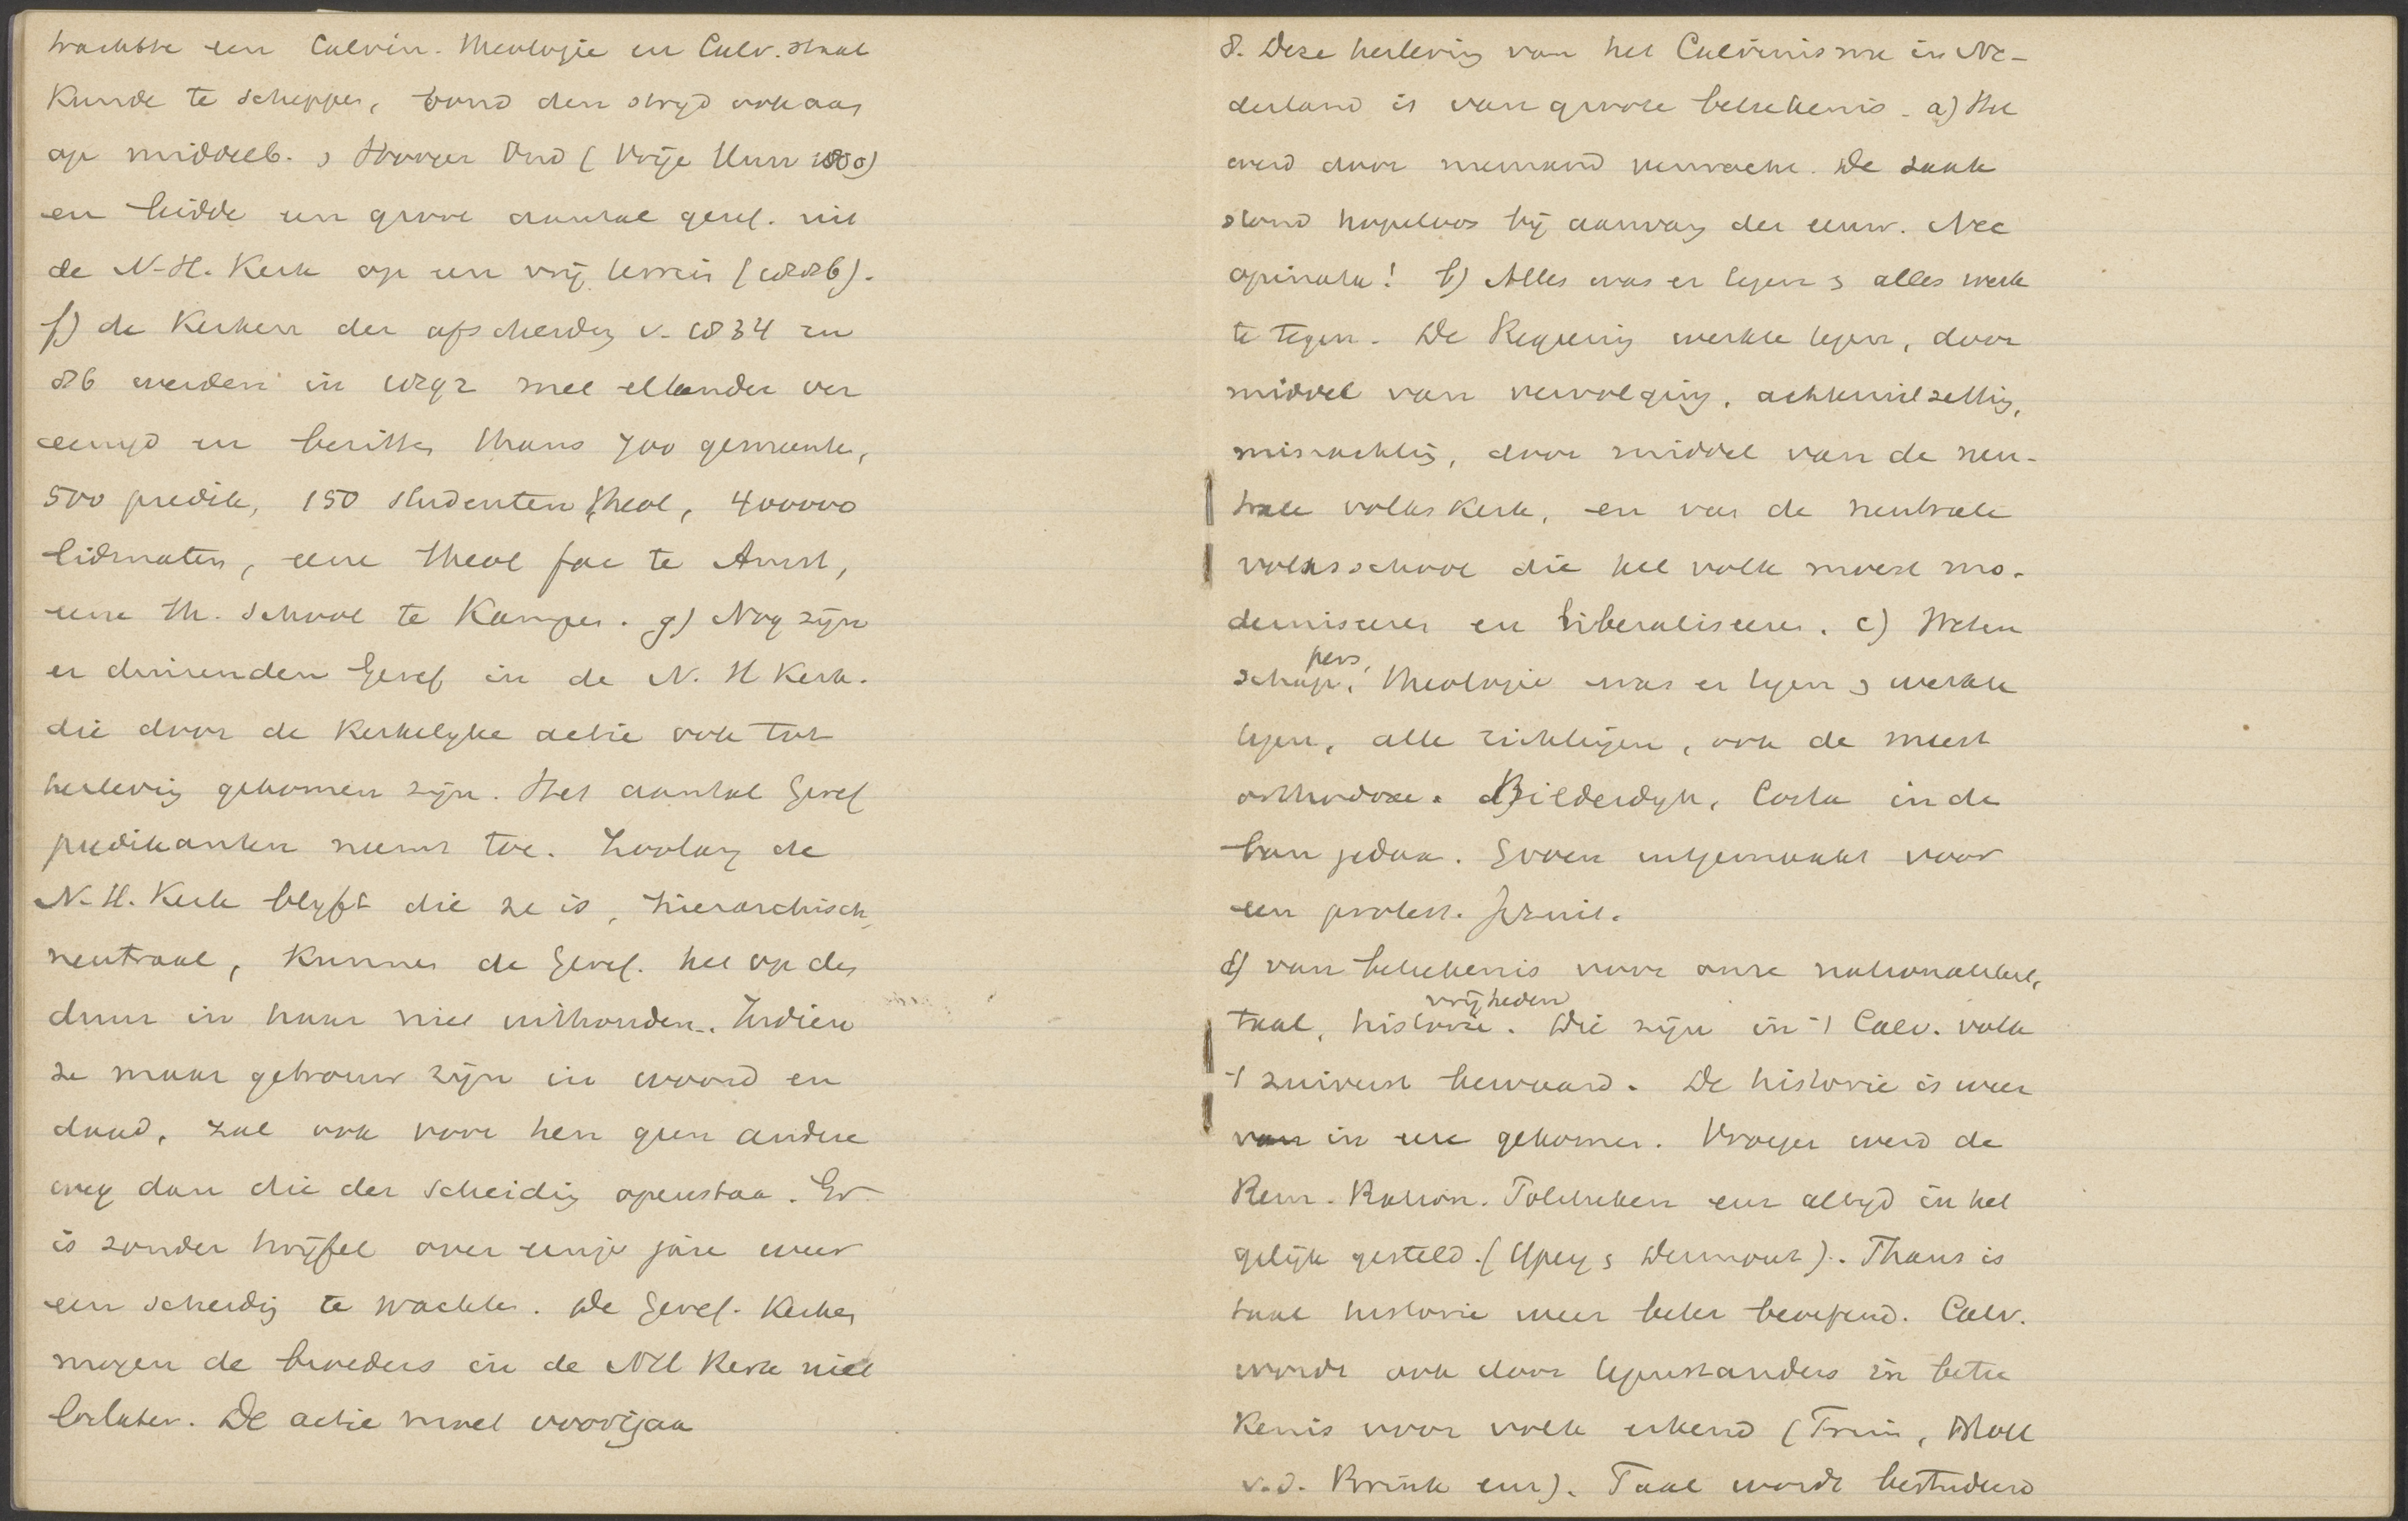 trachtte een Calvin. Theologie en Calv. staat
kunde te scheppen, bond den stryd ook aan
op middelb. & Hooger Ond (Vrije Univ 1880)
en leidde een groot aantal geref. uit
de N.H. Kerk op een vrij terrein (1886).
f) de Kerken der afscheiding v. 1834 en
86 werden in 1892 met elkander ver
eenigd en bezitten thans 700 gemeenten,
500 predik, 150 studenten theol, 400000
lidmaten, eene theol fac te Amst,
eene th. School te Kampen. g) Nog zijn
er duizenden Geref in de N. H Kerk.
die door de Kerkelyke actie ook tot
herleving gekomen zijn. Het aantal Geref
predikanten neemt toe. Zoolang de
N.H. Kerk blyft die ze is, hierarchisch,
neutraal, kunnen de Geref. het op den
duur in haar niet uithouden. Indien
ze maar getrouw zijn in woord en
daad, zal ook voor hen geen andere
weg dan die der scheiding openstaa. Er
is zonder twijfel over enige jare weer
een scheidig te wachten. De Geref. Kerken
mogen de broeders in de NH Kerk niet
loslaten. De actie moet voortgaan
8. Deze herleving van het Calvinisme in Ne-
derland is van groote betekenis. a) Het
werd door niemand verwacht. De zaak
stond hopeloos bij aanvang der eeuw. Nec
opinata! b) Alles was er tegen & alles werk
te tegen. De Regeering werkte tegen, door
middel van vervolging, achteruitzetting,
misachting, door middel van de neu-
trale volkskerk, en van de neutrale
volksschool die het volk moest mo-
derniseeren en liberaliseeren. c) Weten
schap, pers, theologie was er tegen & werkte
tegen, alle richtingen, ook de meest
orthodoxe. Bilderdyk, Costa in de
ban gedaan. Groen uitgemaakt voor
een protest. Jezuit.
d) van betekenis voor onze nationaliteit,
taal, historie. vrijheden Die zijn in 't Calv. volk
't zuiverst bewaard. De historie is weer
van in ere gekomen. Vroeger werd de
Rem. Ration. Toleranten enz altyd in het
gelijk gesteld. (Ypey & Dermout). Thans is
taal historie weer beter beoefend. Calv.
wordt ook door tegenstanders in betee
kenis voor volk erkend (Fruin, Moll
v.d. Brink enz). Taal wordt bestudeerd